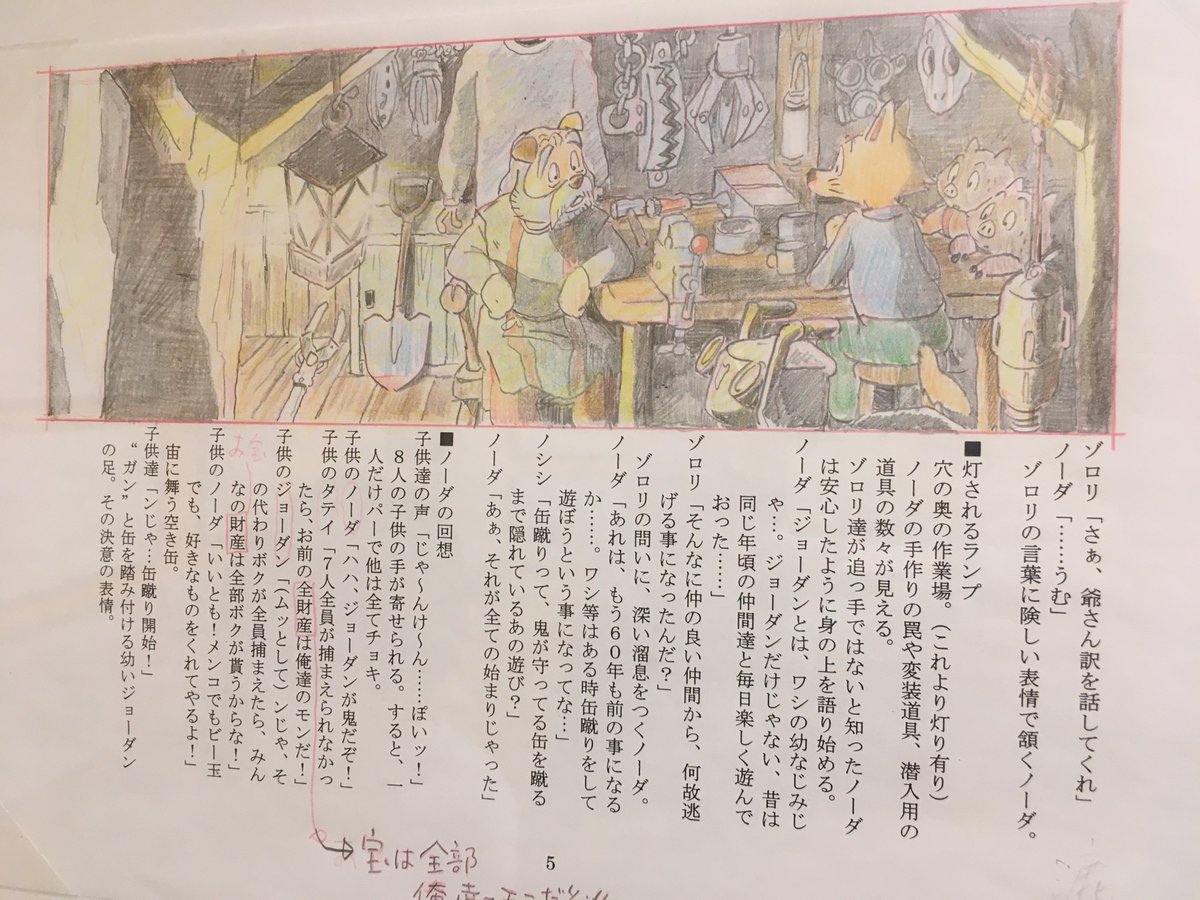 ゾロリ「さぁ、爺さん訳を話してくれ」
ノーダ「……うむ」
ゾロリの言葉に険しい表情で頷くノーダ。
■灯されるランプ
穴の奥の作業場。(これより灯り有り)
ノーダの手作りの罠や変装道具、潜入用の
道具の数々が見える。
ゾロリ達が追っ手ではないと知ったノーダ
は安心したように身の上を語り始める。
ノーダ「ジョーダンとは、ワシの幼なじみじ
ゃ…。ジョーダンだけじゃない、昔は
同じ年頃の仲間達と毎日楽しく遊んで
おった……」
ゾロリ「そんなに仲の良い仲間から、何故逃
げる事になったんだ?」
ゾロリの問いに、深い溜息をつくノーダ。
ノーダ「あれは、もう60年も前の事になる
か……。ワシ等はある時缶蹴りをして
遊ぼうという事になってな…」
ノシシ「缶蹴りって、鬼が守ってる缶を蹴る
まで隠れているあの遊び?」
ノーダ「あぁ、それが全ての始まりじゃった」
■ノーダの回想
子供達の声「じゃ〜んけ〜ん……ぽいッ!」
8人の子供の手が寄せられる。すると、一
人だけパーで他は全てチョキ。
子供のノーダ「ハハ、ジョーダンが鬼だぞ!」
子供のタテイ「7人全員が捕まえられなかっ
たら、お前の全財産は俺達のモンだ!」
子供のジョーダン「(ムッとして)ンじゃ、そ
の代わりボクが全員捕まえたら、みん
なの財産は全部ボクが貰うからな!」
お宝
子供のノーダ「いいとも!メンコでもビー玉
でも、好きなものをくれてやるよ!」
宙に舞う空き缶。
子供達「ンじゃ…缶蹴り開始!」
“ガン”と缶を踏み付ける幼いジョーダン
の足。その決意の表情。
宝は全部
5